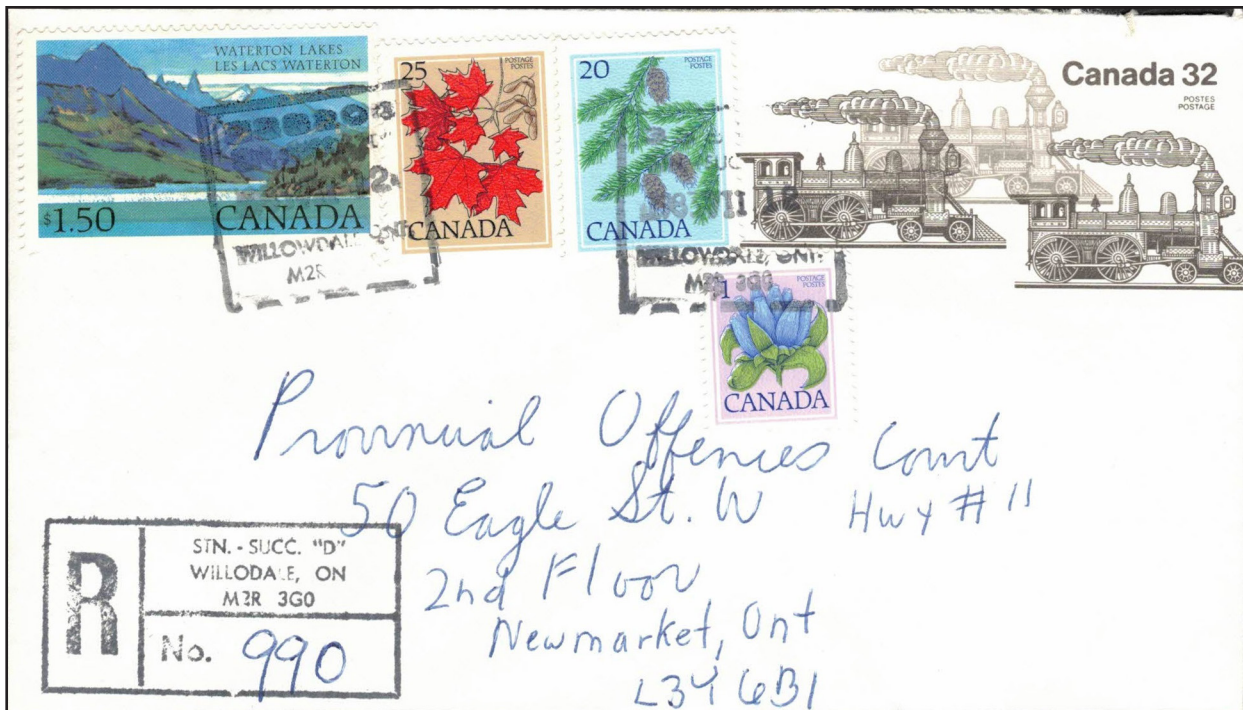 WATERTON LAKES
LES LACS WATERTON
$1.50 CANADA
25 POSTAGE
POSTES
CANADA
20 POSTAGE
POSTES
CANADA
Canada 32
POSTES
POSTAGE
WILLOWDALE, ONT.
M2R
II 12
WILLOWDALE, ONT.
M2R 3G0
1 POSTAGE
POSTES
CANADA
Provincial Offences Court
50 Eagle St. W Hwy # 11
2nd Floor
Newmarket, Ont
L3Y 6B1
R
STN. - SUCC. "D"
WILLODALE, ON
M2R 3G0
No. 990